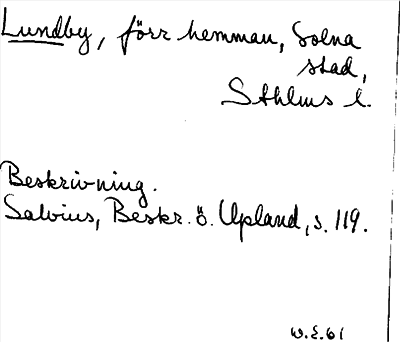 Lundby, förr hemman, Solna
stad,
Sthlms l.
Beskrivning.
Salvius, Beskr. ö. Upland, s. 119.
W.E. 61